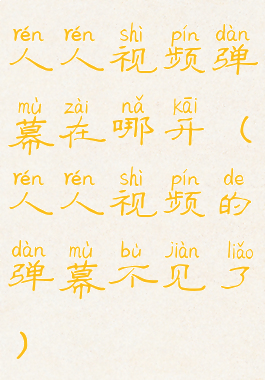 rén rén shì pín dàn
人人视频弹
mù zài nǎ kāi
幕在哪开（
rén rén shì pín de
人人视频的
dàn mù bù jiàn liǎo
弹幕不见了
）